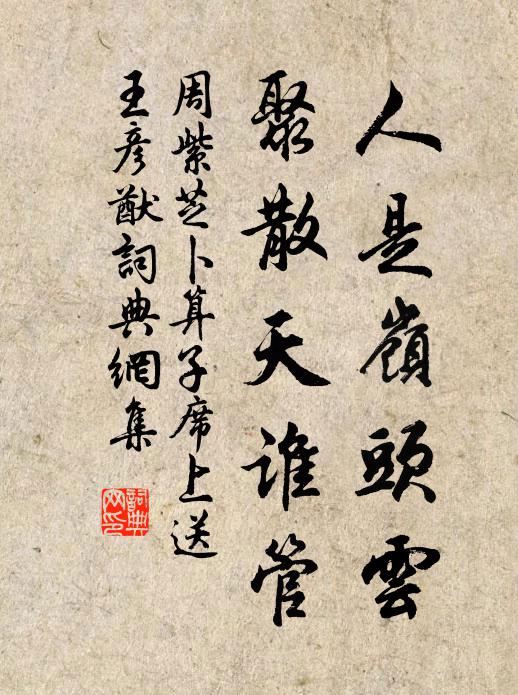 人是嶺頭雲
聚散天誰管
周紫芝卜算子席上送
王彥猷詞典網集
詞典網印